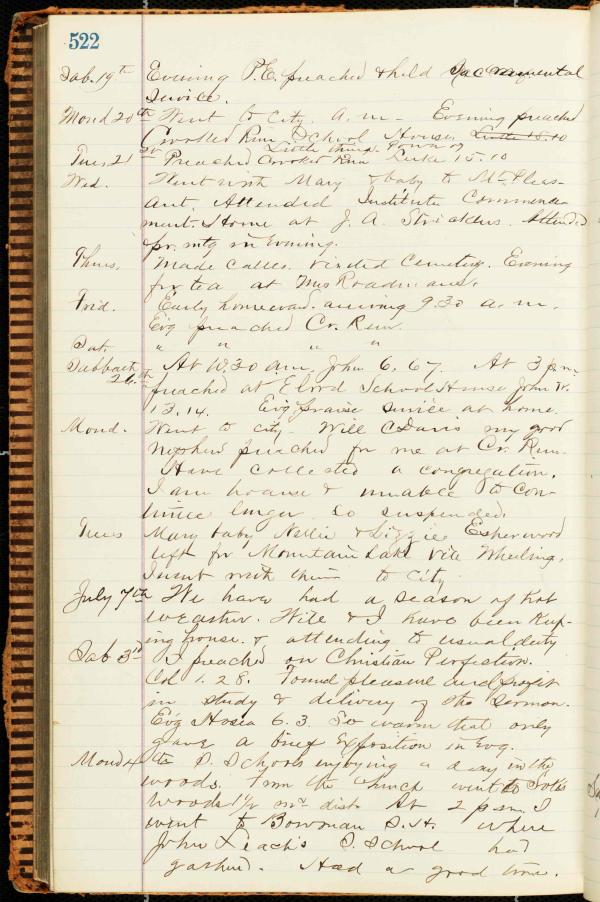 522
Sab. 19th Evening P.E. preached & held Sacramental
service.
Mond 20th Went to City. a.m. Evening preached
Crooked Run School House. Luke 15.10
Little things Power of
Tues 21st Preached Crooked Run Luke 15.10
Wed. Went with Mary & baby to Mt. Pleas-
ant. Attended Institute Commence-
ment. Home at J. A. Stricklers. Attended
pr. mtg in Evening.
Thurs. Made calls. Visited Cemetery. Evening
for tea at Mrs
Frid. Early homeward. arriving 9.30 a.m.
Evg preached Cr. Run.
Sat. " " " "
Sabbath 26th At 10.30 a.m. John 6.67. At 3 p.m.
preached at School House John
13.14. Evg praise service at home.
Mond. Went to city. Will C Davis my good
nephew preached for me at Cr. Run.
Have collected a congregation.
I am hoarse & unable to con-
tinue longer so suspended.
Tues Mary baby Nellie & Lizzie Esherwood
left for Mountain Lake via Wheeling.
I went with them to City
July 7th We have had a season of hot
weather. Wife & I have been keep-
ing house. & attending to usual duty
Sab 3rd I preached on Christian Perfection.
Col 1.28. Found pleasure and profit
in study & delivery of the sermon.
Evg Hosea 6.3. So warm that only
gave a brief Exposition in Evg.
Mond 4 to S. Schools enjoying a day in the
woods. From the church went to
Woods 1 1/2 m. dist. At 2 p.m. I
went to Bowman S.H. where
John Leach's S. School had
gathered. Had a good time.